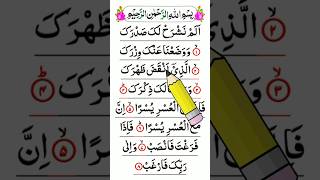 بِسْمِ اللهِ الرَّحْمٰنِ الرَّحِيْمِ
اَلَمْ نَشْرَحْ لَكَ صَدْرَكَ
وَوَضَعْنَا عَنْكَ وِزْرَكَ
الَّذِيْٓ اَنْقَضَ ظَهْرَكَ
لَكَ ذِكْرَكَ
الْعُسْرِ يُسْرًا اِنَّ
مَعَ الْعُسْرِ يُسْرًا فَاِذَا
فَرَغْتَ فَانْصَبْ وَاِلٰى
رَبِّكَ فَارْغَبْ